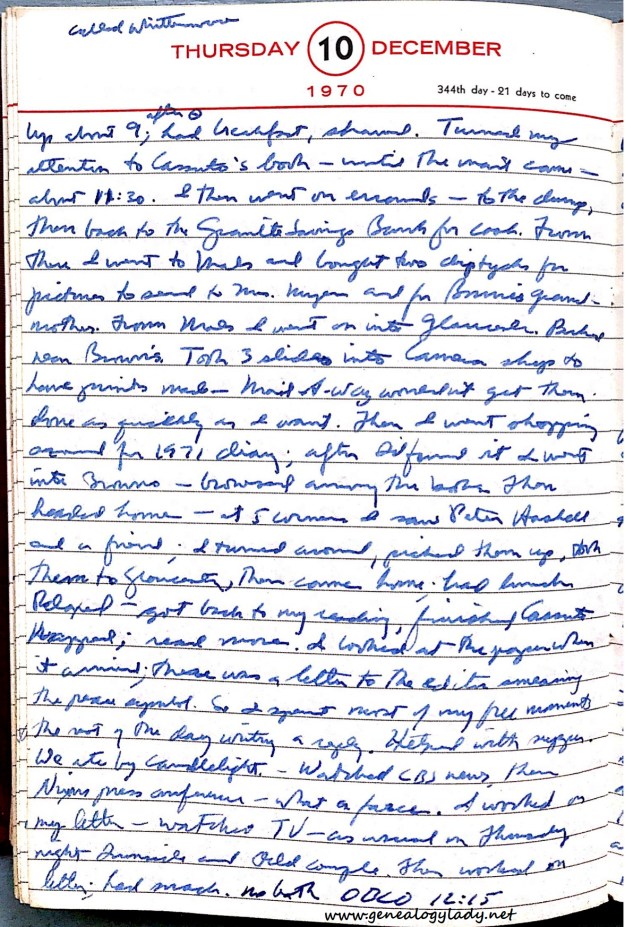 called Whittemore
THURSDAY 10 DECEMBER
1970
344th day - 21 days to come
after
Up about 9; had breakfast, shaved. Turned my
attention to Cassuto's book – until the mail came –
about 11:30. I then went on errands – to the dump,
then back to the Granite Savings Bank for cash. From
there I went to and bought two diptychs for
pictures to send to Mrs. and for Bonnie's grand-
mother. From I went on into Gloucester. Parked
near Brown's. Took 3 slides into Camera shop to
have prints made – Mail-A-Way wouldn't get them
done as quickly as I want. Then I went shopping
around for 1971 diary; after I found it I went
into Browns – browsed among the books. Then
headed home – at 5 corners I saw Peter Haskell
and a friend. I turned around, picked them up, took
them to Gloucester, then came home; had lunch.
Relaxed – got back to my reading, finished Cassuto
read more. I looked at the paper when
it arrived; there was a letter to the editor smearing
the peace symbol. So I spent most of my free moments
the rest of the day writing a reply. Helped with supper.
We ate by candlelight. – Watched CBS news, then
Nixons press conference – what a farce. I worked on
my letter – watched TV – as usual on Thursday
night Ironside and Odd Couple. Then worked on
letter; had snack. no bath 12:15
www.genealogylady.net